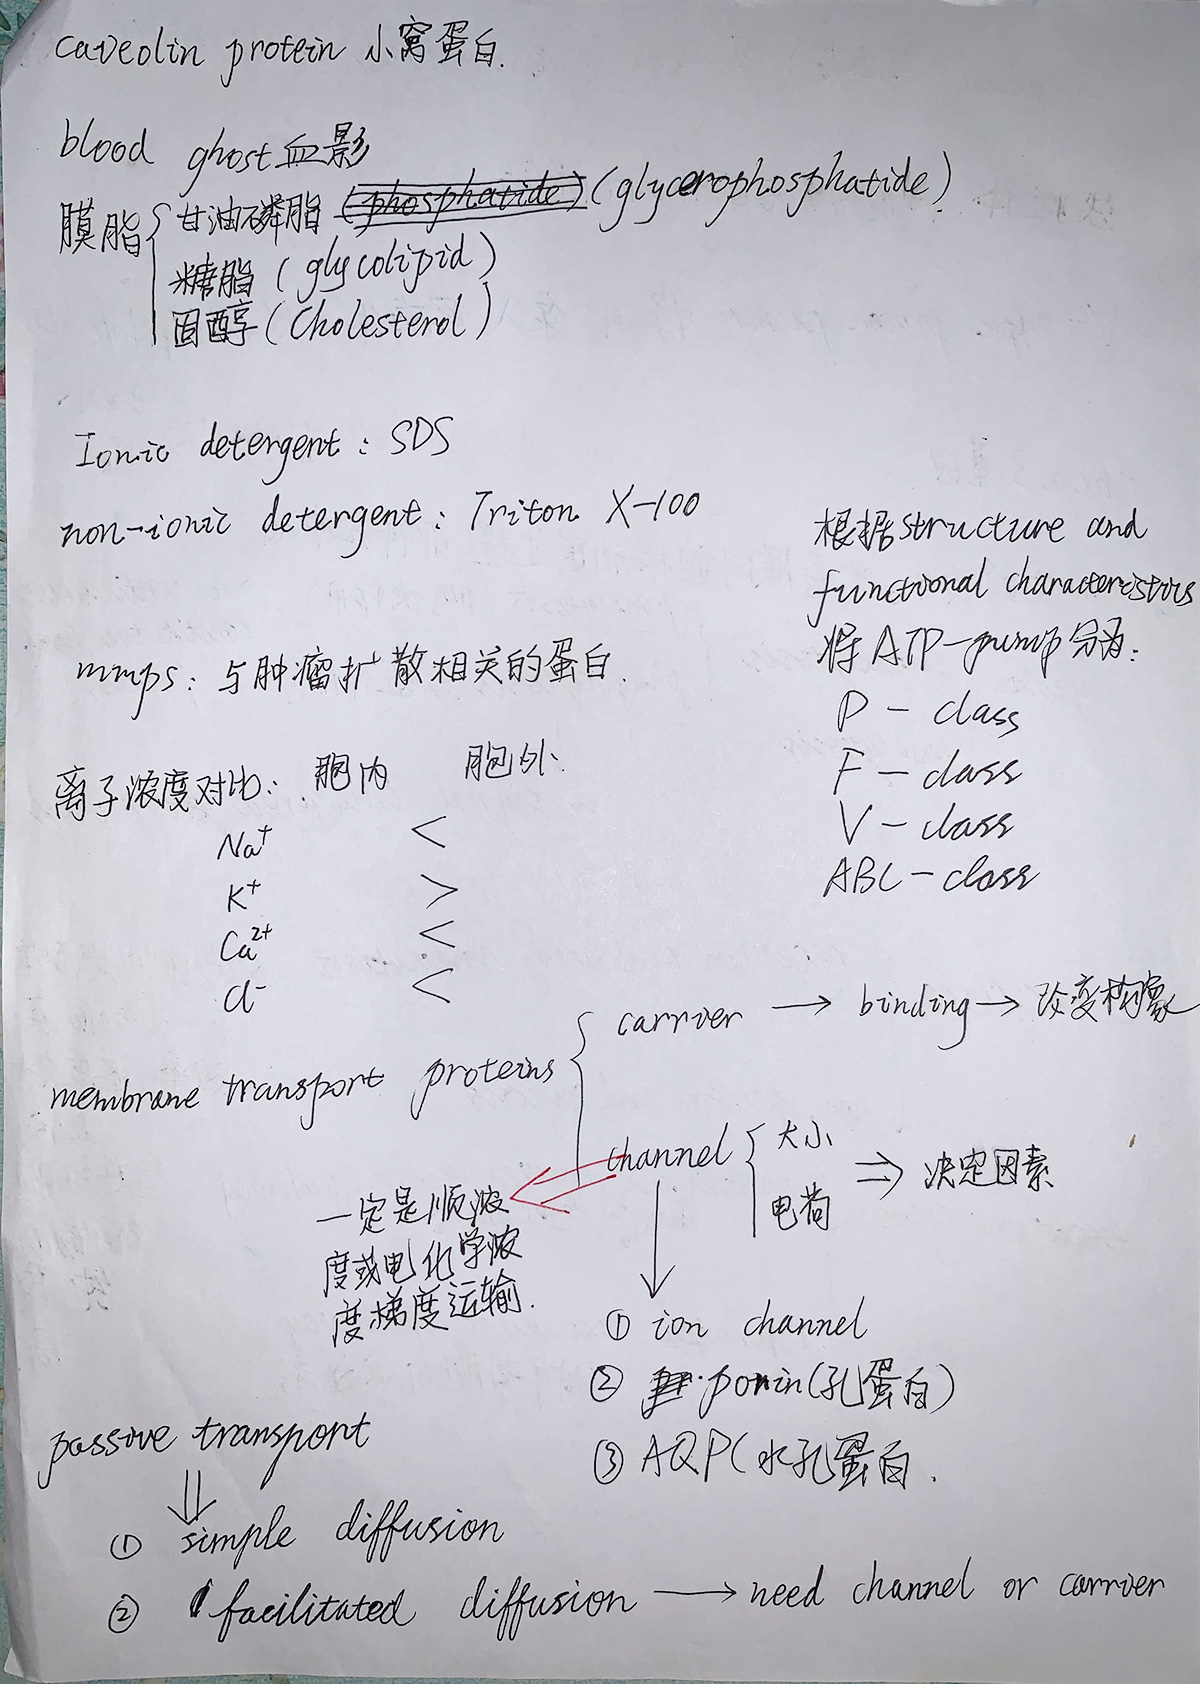 caveolin protein 小窝蛋白.
blood ghost 血影
膜脂 { 甘油磷脂 (phosphatide) (glycerophosphatide)
糖脂 (glycolipid)
固醇 (Cholesterol)
Ionic detergent: SDS
non-ionic detergent: Triton X-100
根据 structure and
functional characteristics
将 ATP-pump 分为:
P - class
F - class
V - class
ABC - class
mmps: 与肿瘤扩散相关的蛋白.
离子浓度对比: 胞内 胞外
Na⁺ <
K⁺ >
Ca²⁺ <
Cl⁻ <
membrane transport proteins { carrier → binding → 改变构象
channel { 大小
电荷 ⇒ 决定因素
一定是顺浓
度或电化学浓
度梯度运输.
① ion channel
② porin (孔蛋白)
③ AQP (水孔蛋白.
passive transport
⇓
① simple diffusion
② facilitated diffusion → need channel or carrier